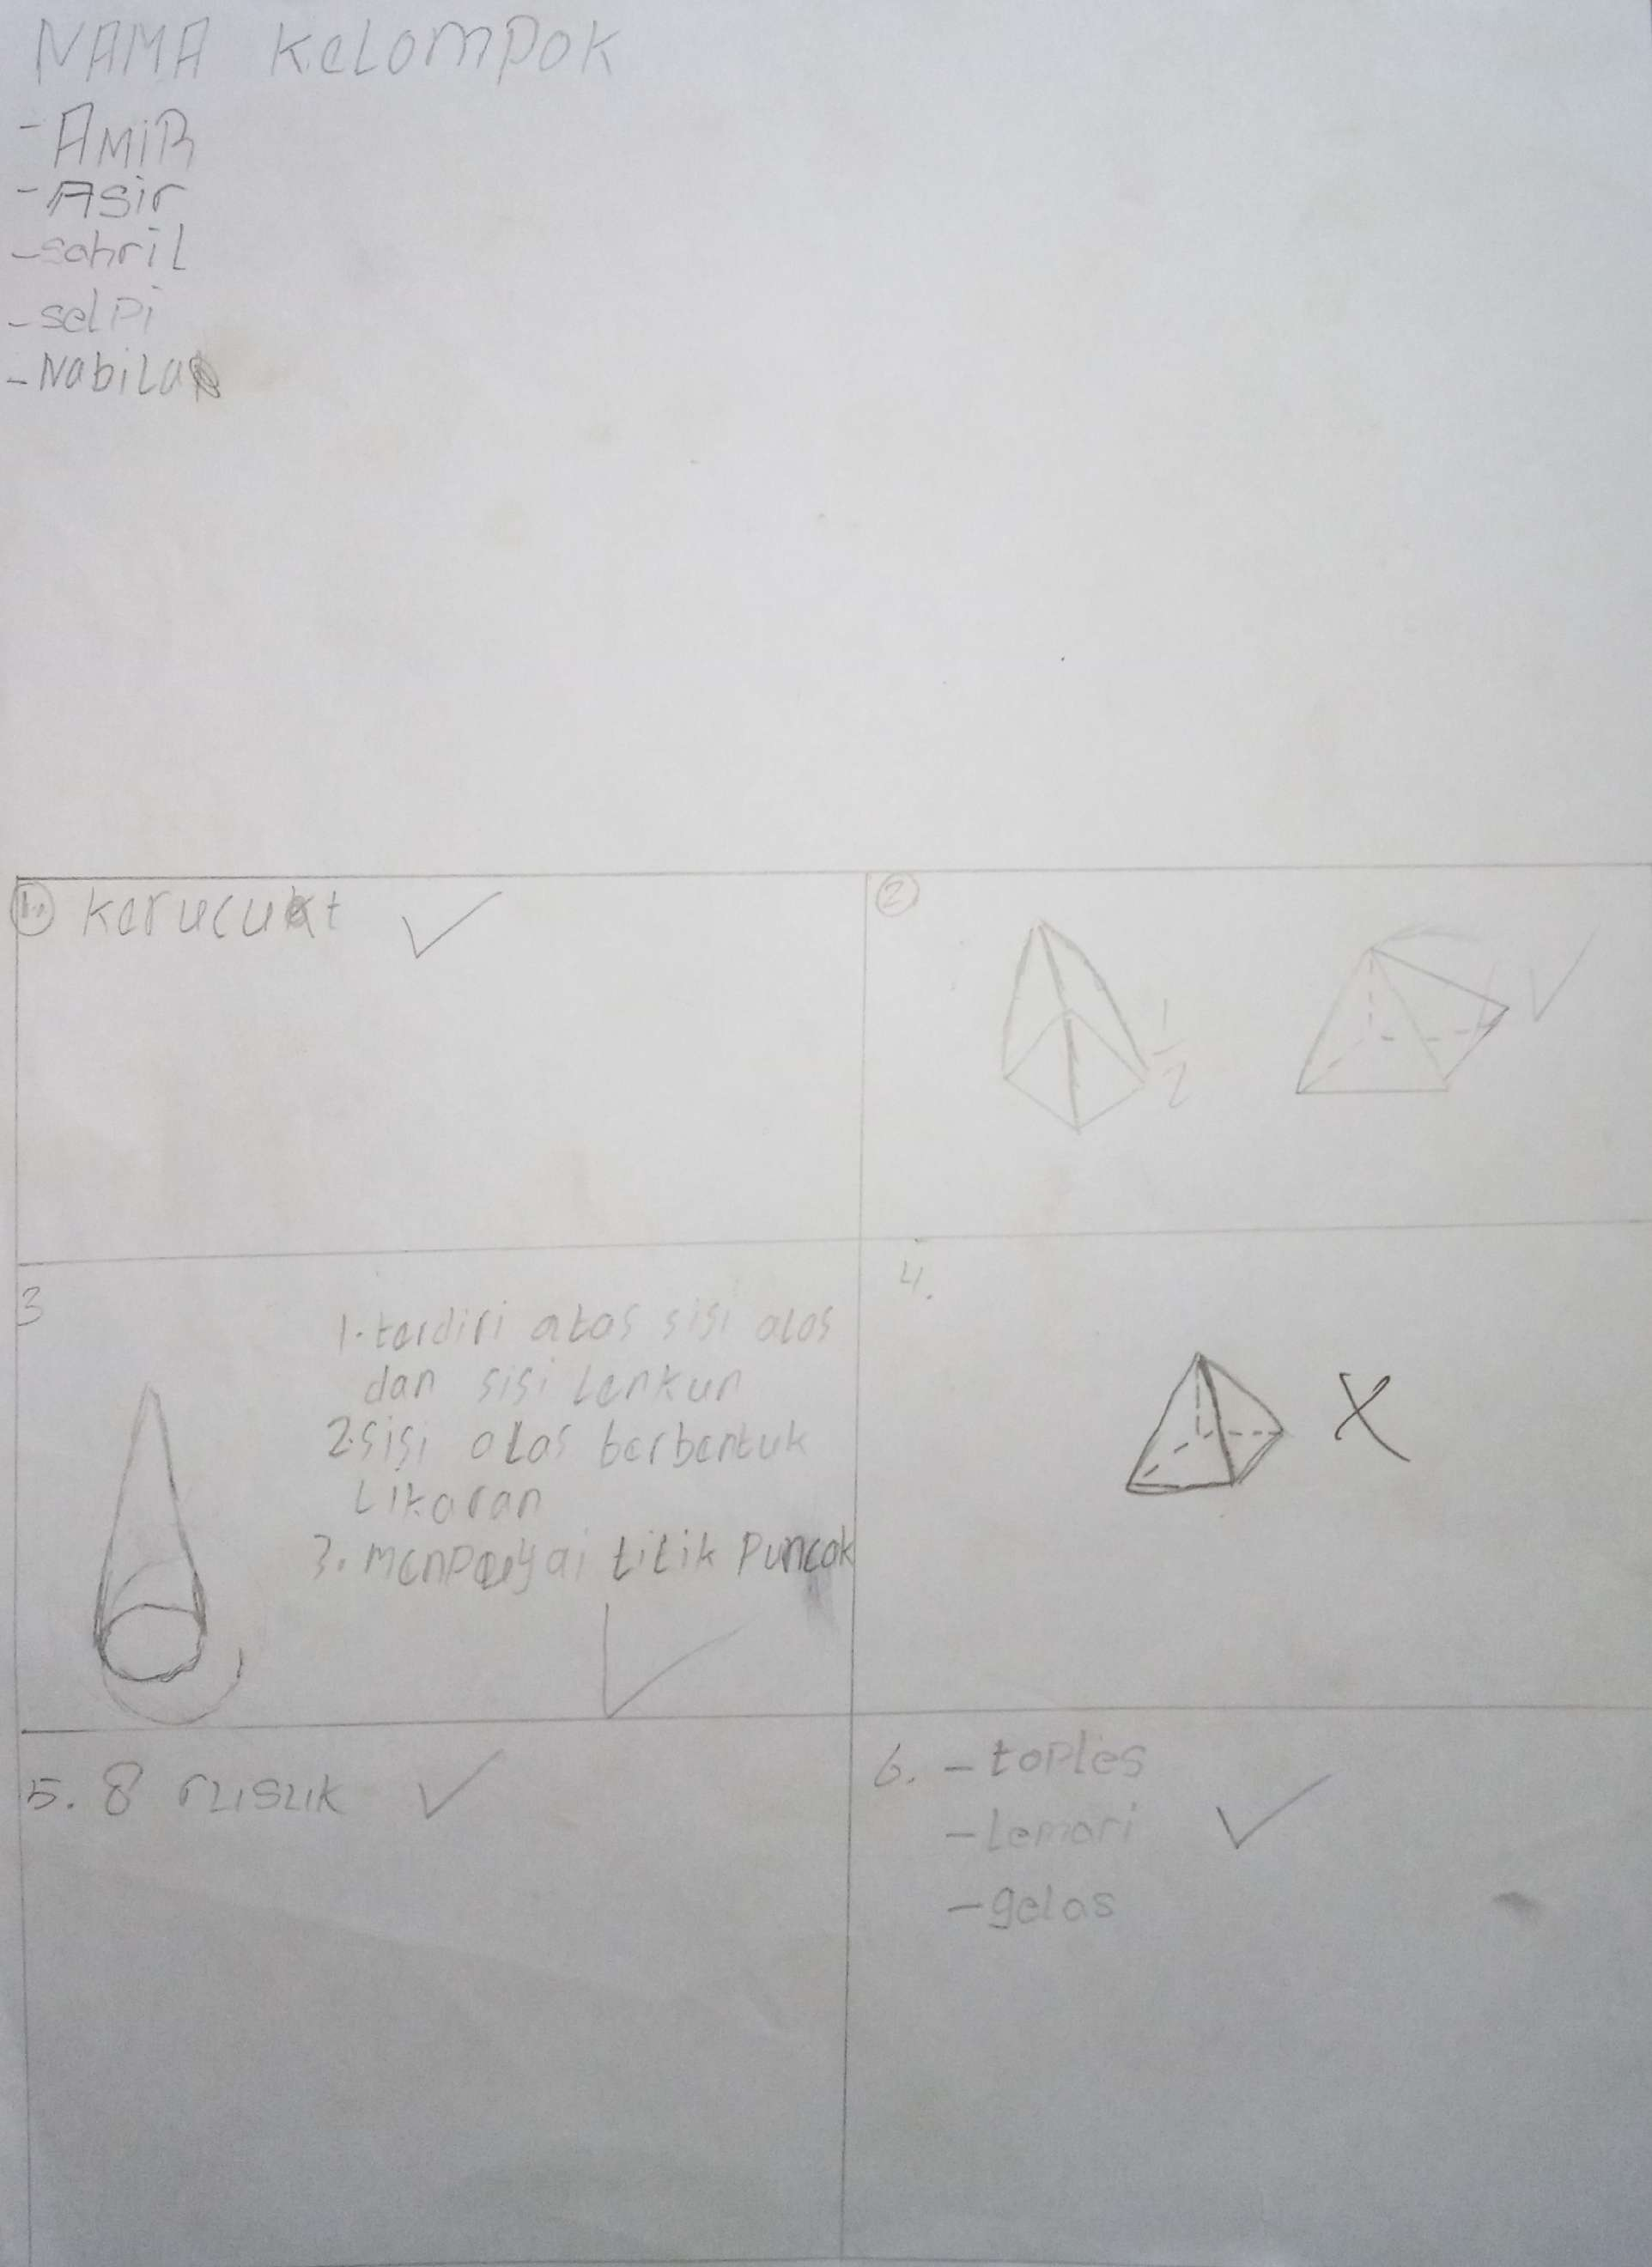 NAMA Kelompok
- AMiR
- Asir
- sahril
- selpi
- Nabila
1. Kerucut
2
1
2
3
1. terdiri atas sisi alas
dan sisi Lenkun
2. sisi alas berbentuk
Likaran
3. menpunyai titik Puncak
4.
5. 8 rusuk
6. - toples
- Lemari
- gelas